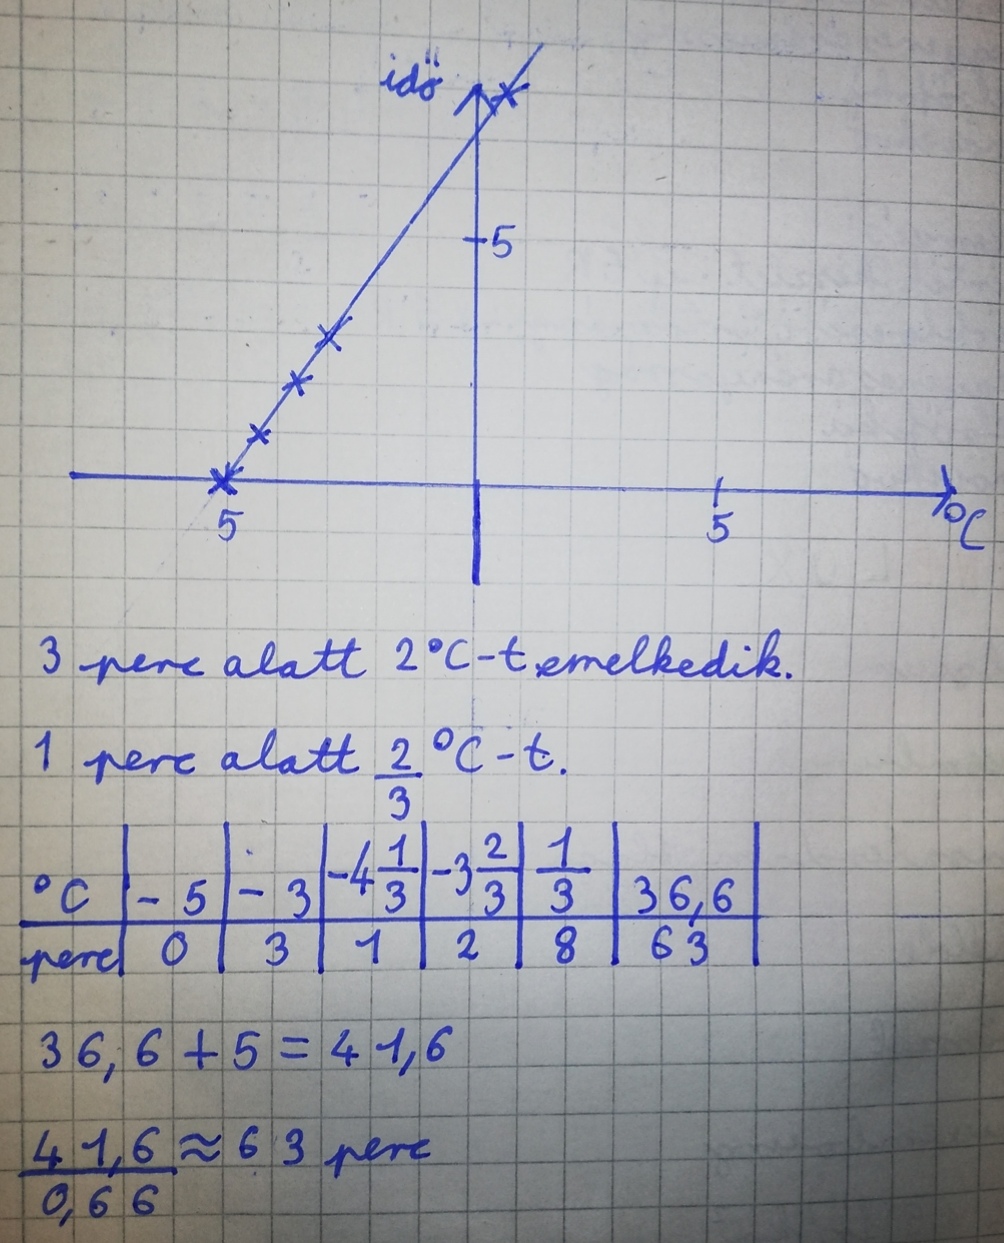 idő
5
5
5
°C
3 perc alatt 2°C-t emelkedik.
1 perc alatt 2/3 °C-t.
°C | - 5 | - 3 | -4 1/3 | -3 2/3 | 1/3 | 36,6
perc | 0 | 3 | 1 | 2 | 8 | 63
36,6 + 5 = 41,6
41,6/0,66 ≈ 63 perc